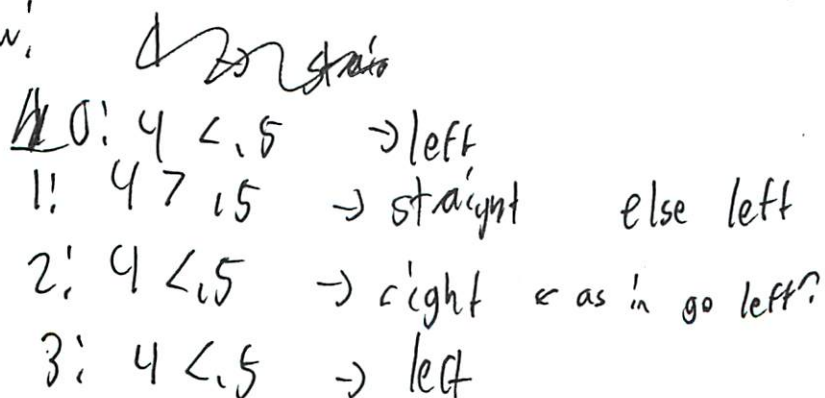 0: 4 < .5 → left
1: 4 > .5 → straight else left
2: 4 < .5 → right ← as in go left?
3: 4 < .5 → left